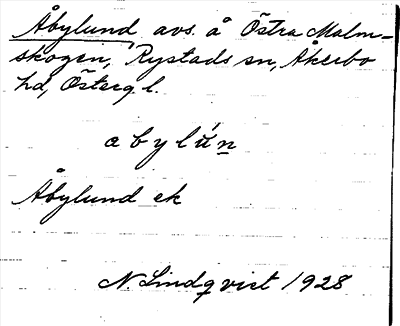 Åbylund avs. å Östra Malm-
skogen, Rystads sn, Åkerbo
hd, Österg. l.
a b y l ú n
Åbylund ek
N. Lindqvist 1928